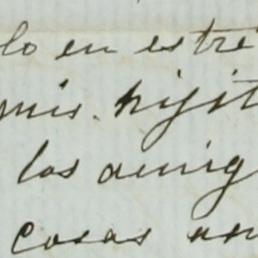 lo en estre
mis. hijit
las amig
cosas an